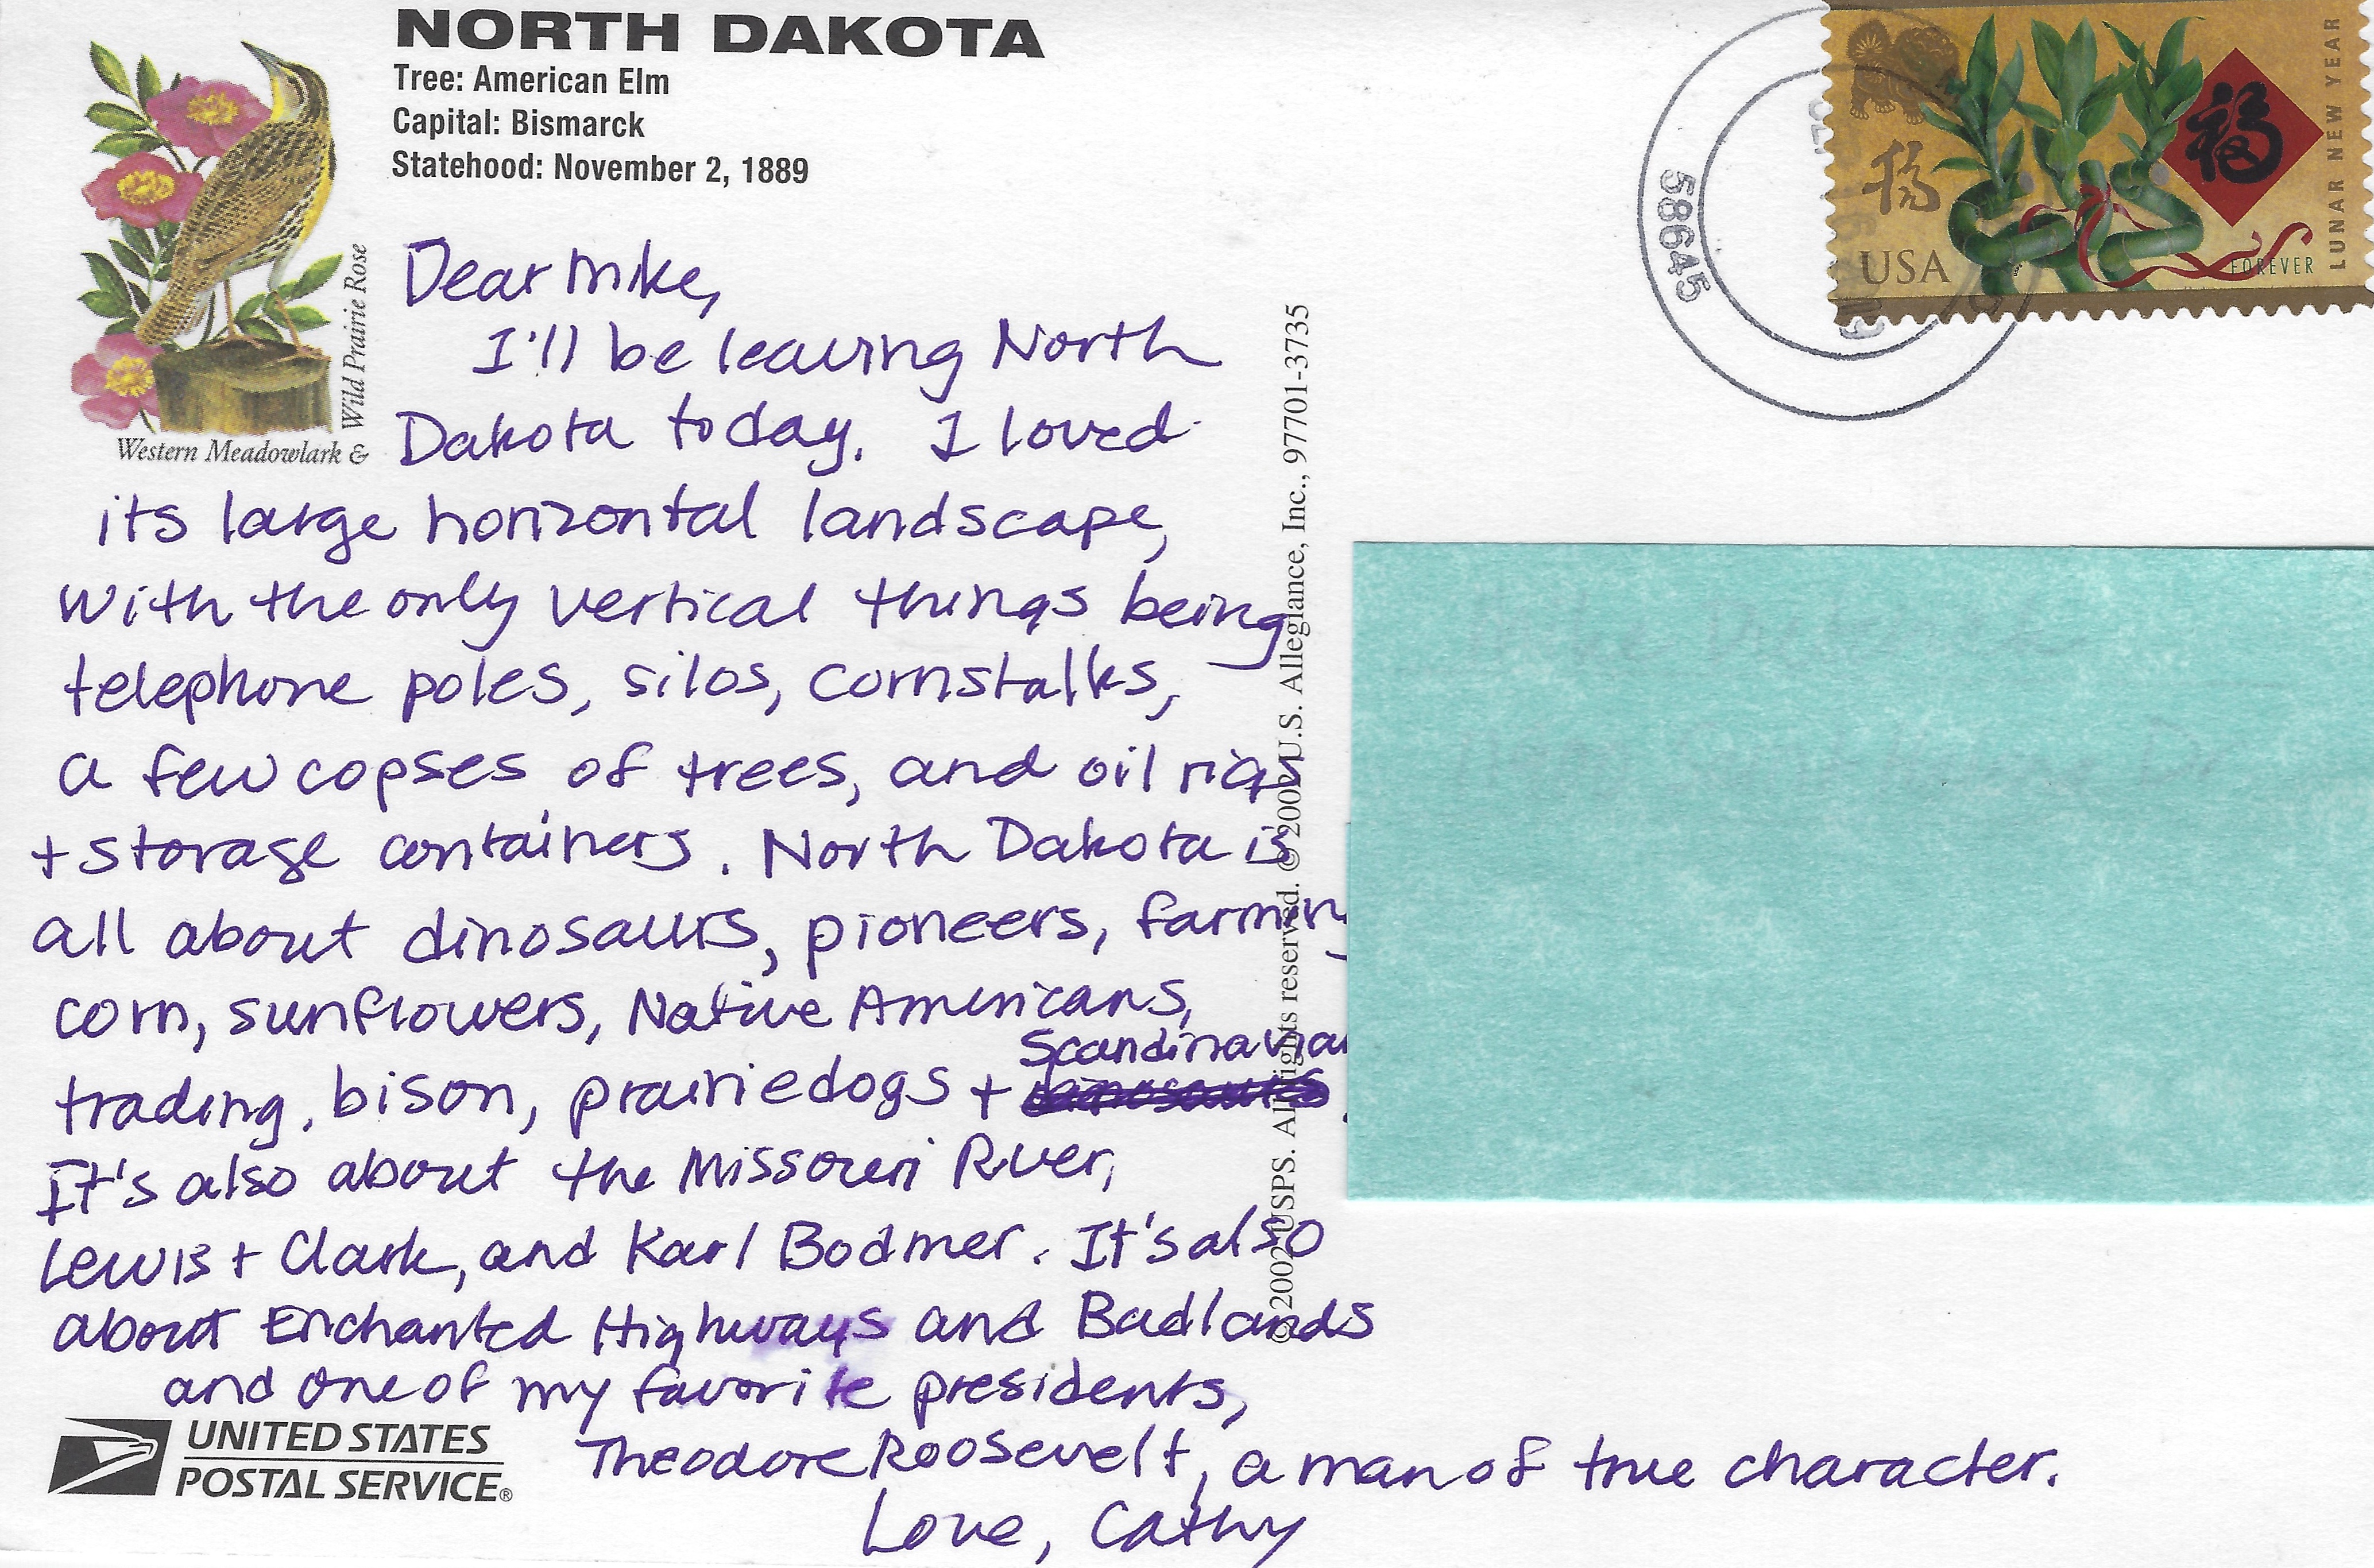 NORTH DAKOTA
Tree: American Elm
Capital: Bismarck
Statehood: November 2, 1889
Western Meadowlark &
Wild Prairie Rose
58645
福
福
USA
FOREVER
LUNAR NEW YEAR
Dear Mike,
I'll be leaving North
Dakota today. I loved
its large horizontal landscape,
with the only vertical things being
telephone poles, silos, cornstalks,
a few copses of trees, and oil rigs
+ storage containers. North Dakota is
all about dinosaurs, pioneers, farming
corn, sunflowers, Native Americans,
Scandinavian
trading, bison, prairiedogs + dinosaurs
It's also about the Missouri River,
Lewis + Clark, and Karl Bodmer. It's also
about Enchanted Highways and Badlands
and one of my favorite presidents,
Theodore Roosevelt, a man of true character.
Love, Cathy
UNITED STATES
POSTAL SERVICE®
©2002 USPS. All rights reserved. ©2002 U.S. Allegiance, Inc., 97701-3735